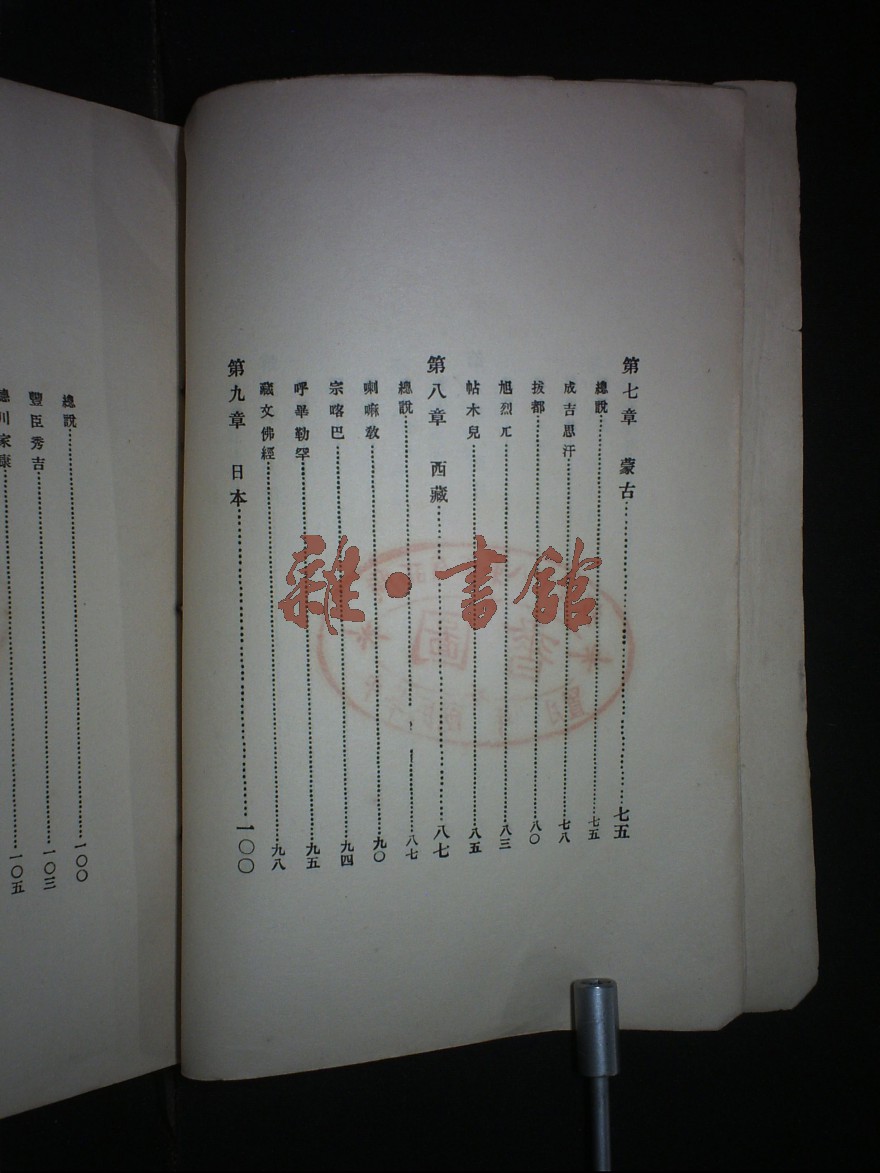 第七章　蒙古…………七五
總說…………七五
成吉思汗…………七八
拔都…………八〇
旭烈兀…………八三
帖木兒…………八五
第八章　西藏…………八七
總說…………八七
喇嘛敎…………九〇
宗喀巴…………九四
呼畢勒罕…………九五
藏文佛經…………九八
第九章　日本…………一〇〇
總說…………一〇〇
豐臣秀吉…………一〇三
德川家康…………一〇五
雜·書館